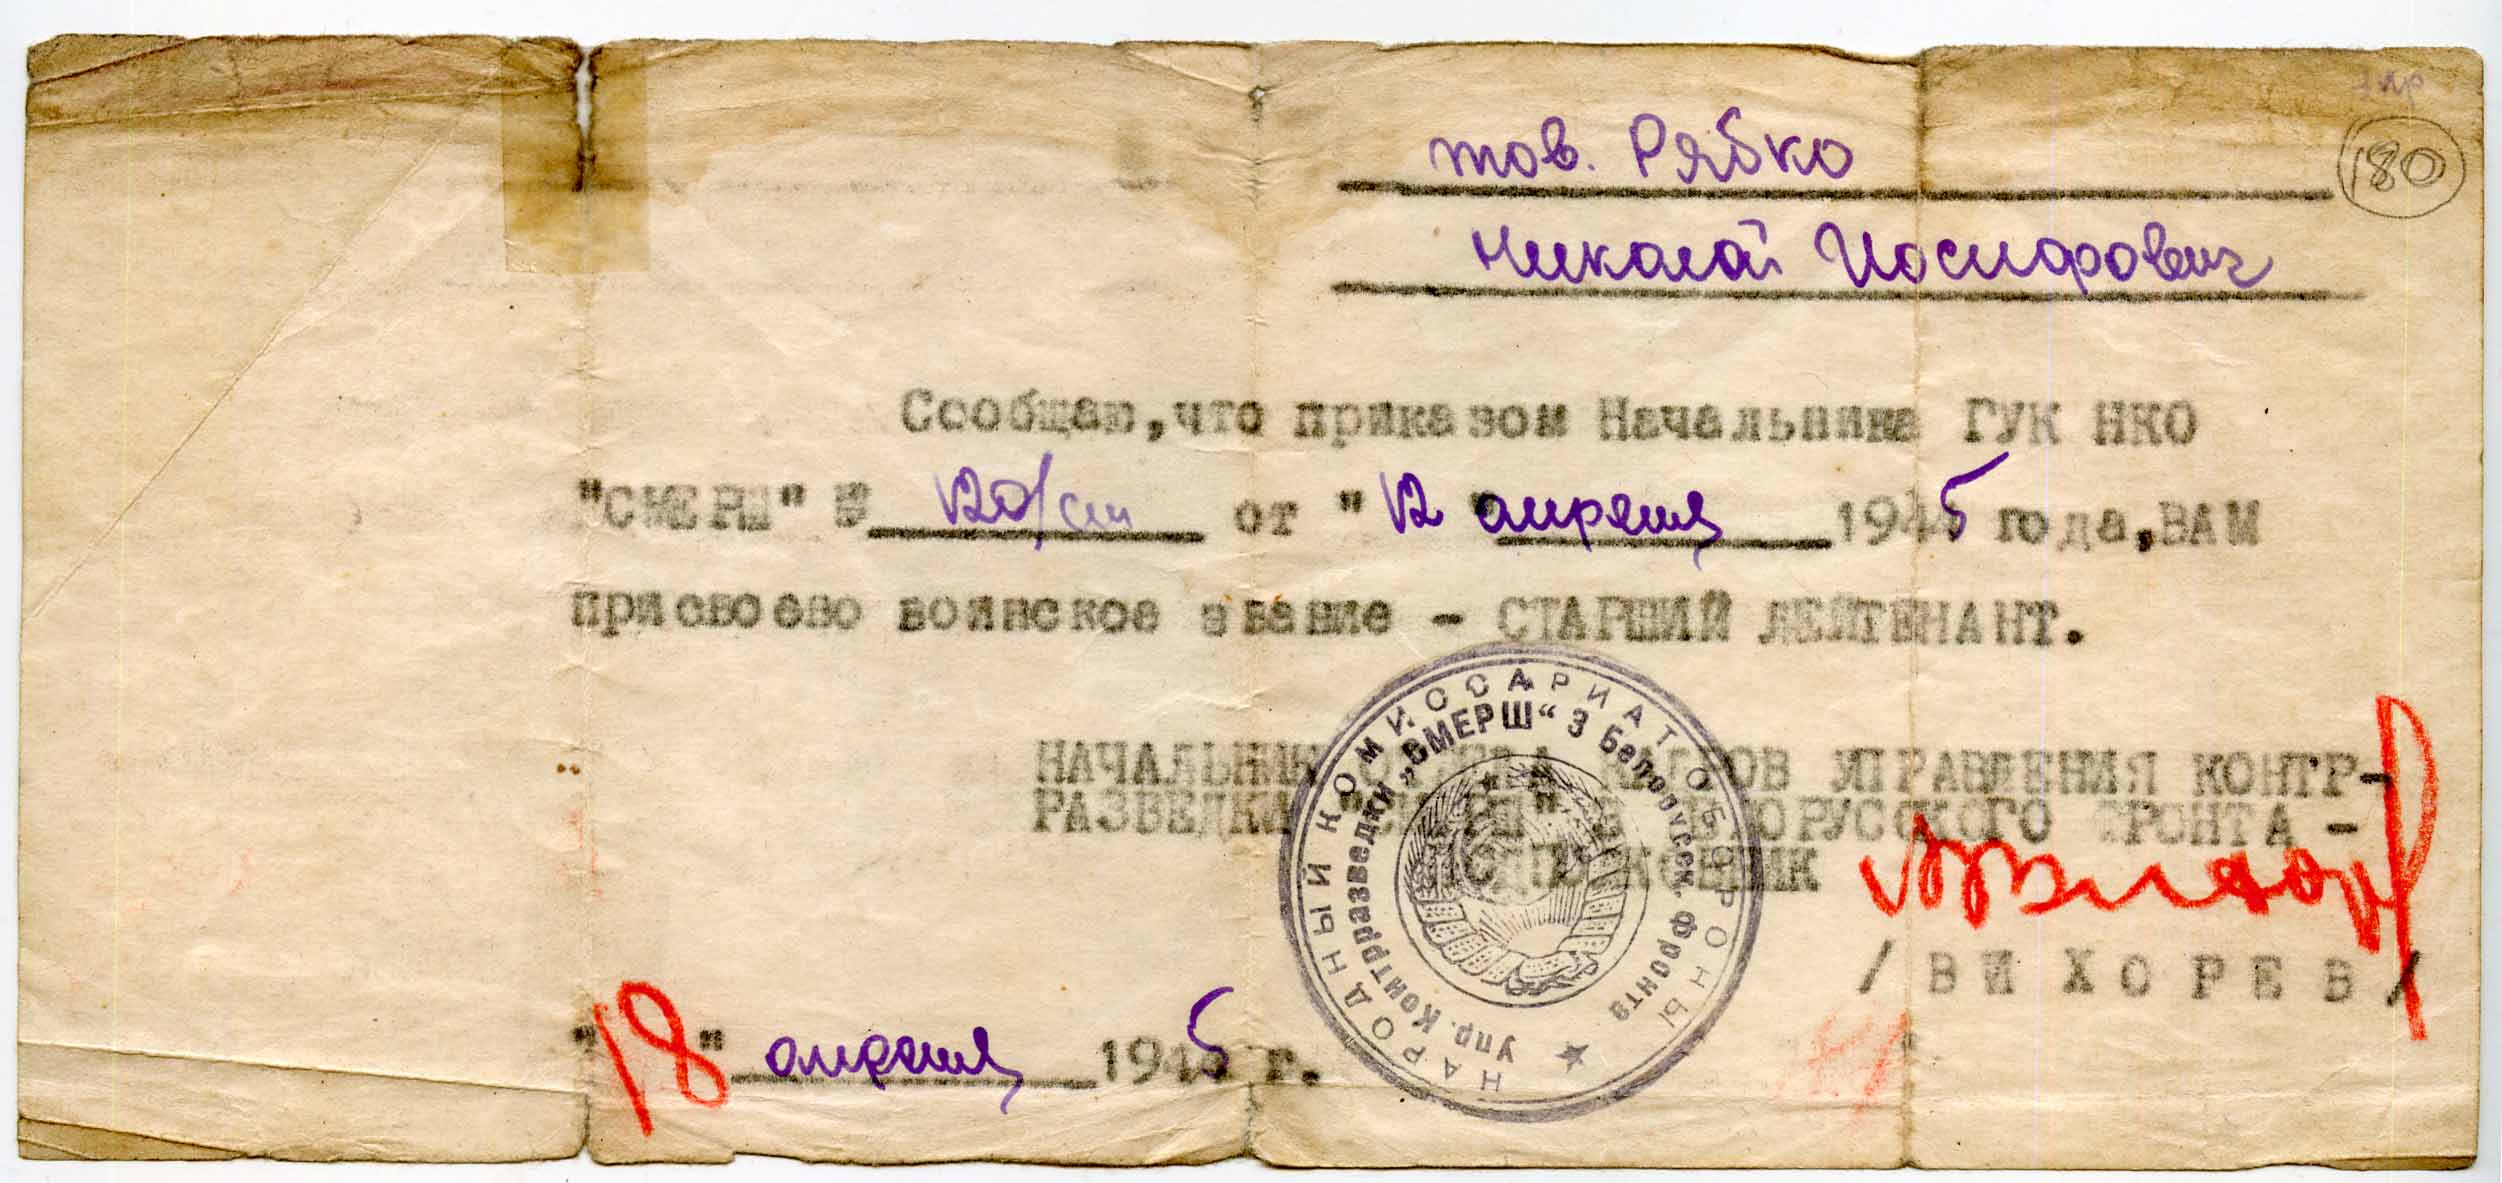 тов. Рябко
180
Николай Иосифович
Сообщаю, что приказом Начальника ГУК НКО
"СМЕРШ" № 120/сш от "12" апреля 1945 года, ВАМ
присвоено воинское звание - СТАРШИЙ ЛЕЙТЕНАНТ.
НАЧАЛЬНИК ОТДЕЛА КАДРОВ УПРАВЛЕНИЯ КОНТР-
РАЗВЕДКИ "СМЕРШ" 3 БЕЛОРУССКОГО ФРОНТА -
ПОДПОЛКОВНИК
/ВИХОРЕВ/
"18" апреля 1945 г.
НАРОДНЫЙ КОМИССАРИАТ ОБОРОНЫ
Упр. Контрразведки „СМЕРШ“ 3 Белорусск. Фронта